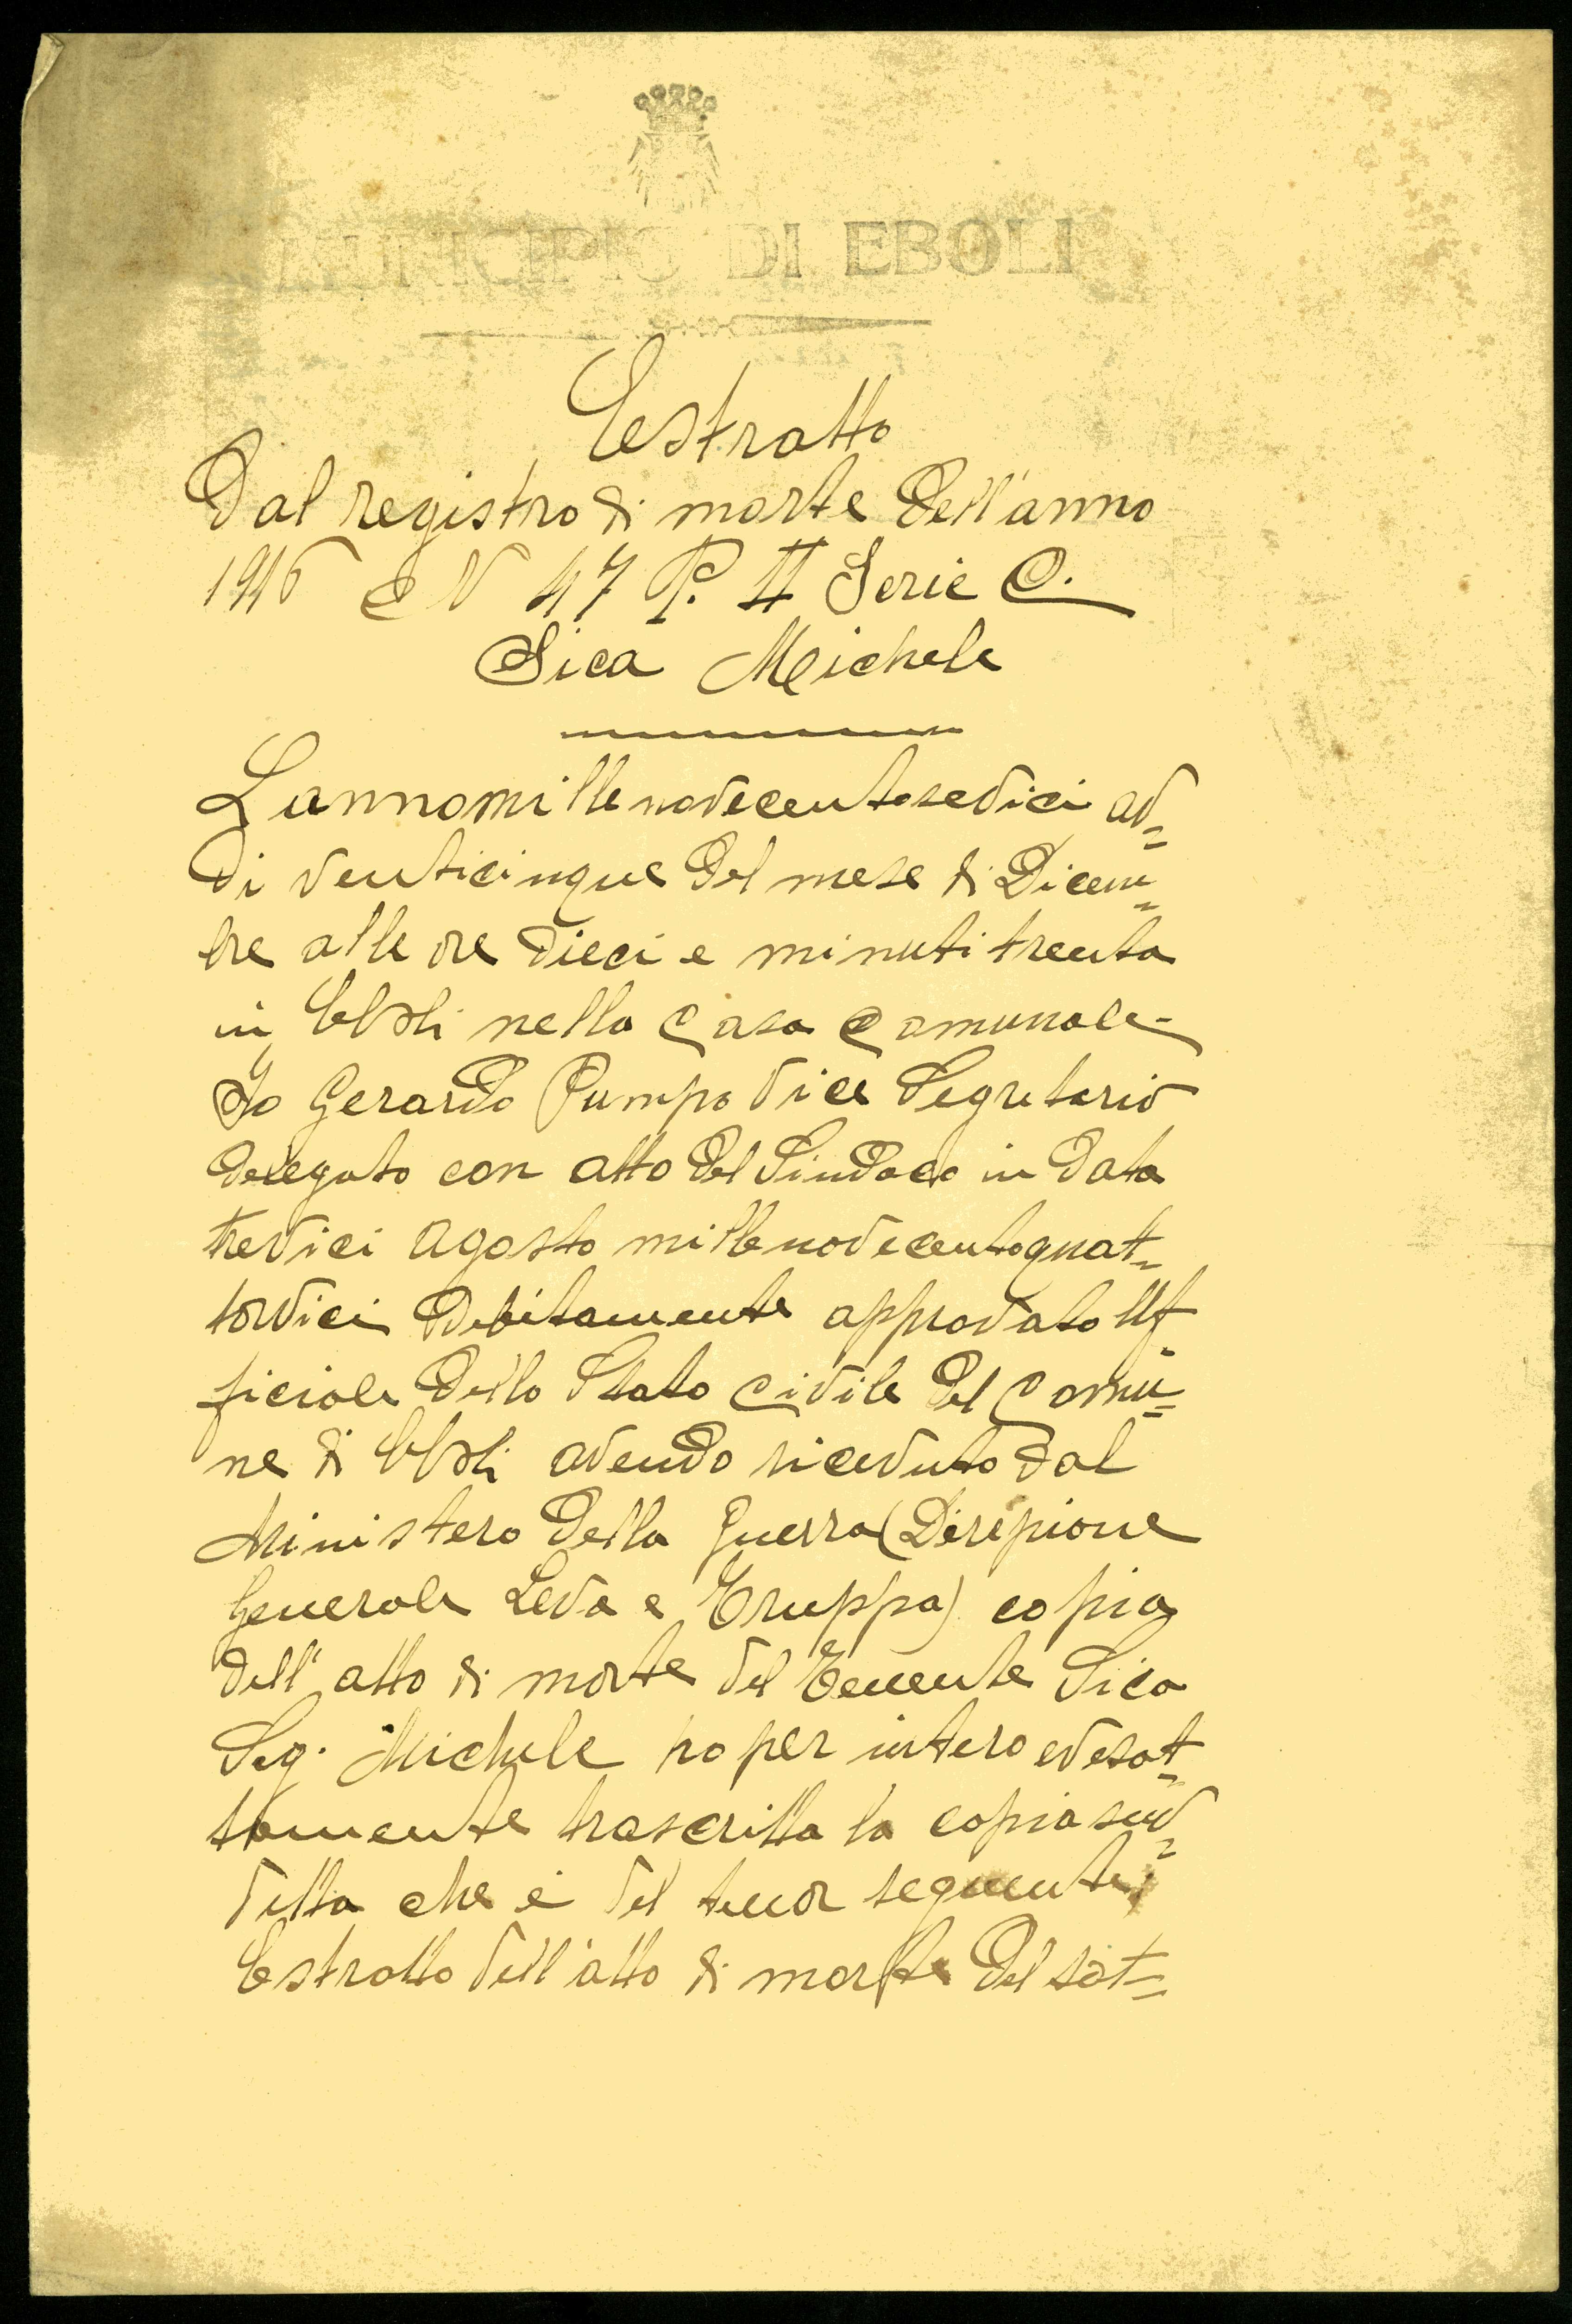 MUNICIPIO DI EBOLI
Estratto
Dal registro di morte dell'anno
1916 e N 47 P. II Serie C.
Sica Michele
L'annomillenovecentosedici ad=
di venticinque del mese di Dicem=
bre alle ore dieci e minuti trenta
in Eboli nella Casa Comunale-
Io Gerardo Pumpo Vice Segretario
delegato con atto del Sindaco in data
tredici Agosto millenovecentoquat=
tordici debitamente approvato Uf=
ficiale dello Stato Civile del Comu=
ne di Eboli avendo ricevuto dal
Ministero della Guerra (Direzione
Generale Leva e Truppa) copia
dell'atto di morte del Tenente Sica
Sig. Michele ho per intero ed esat=
tamente trascritta la copia sud=
detta che è del tenor seguente:
Estratto dell'atto di morte del sot=